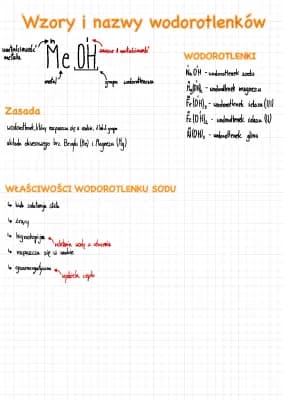 Wzory i nazwy wodorotlenków
wartościowość
metalu
n I
MeOH
zawsze I wartościowość
metal
grupa wodorotlenowa
WODOROTLENKI
NaOH - wodorotlenek sodu
Mg(OH)₂ - wodorotlenek magnezu
Fe(OH)₃ - wodorotlenek żelaza (III)
Fe(OH)₂ - wodorotlenek żelaza (II)
Al(OH)₃ - wodorotlenek glinu
Zasada
wodorotlenek, który rozpuszcza się w wodzie, 1 lub 2 grupa
układu okresowego bez Berylu (Be) i Magnezu (Mg)
WŁAŚCIWOŚCI WODOROTLENKU SODU
• ciało stałe
• żrący
• higroskopijne
chłonie wodę z otoczenia
• rozpuszcza się w wodzie
wydziela ciepło